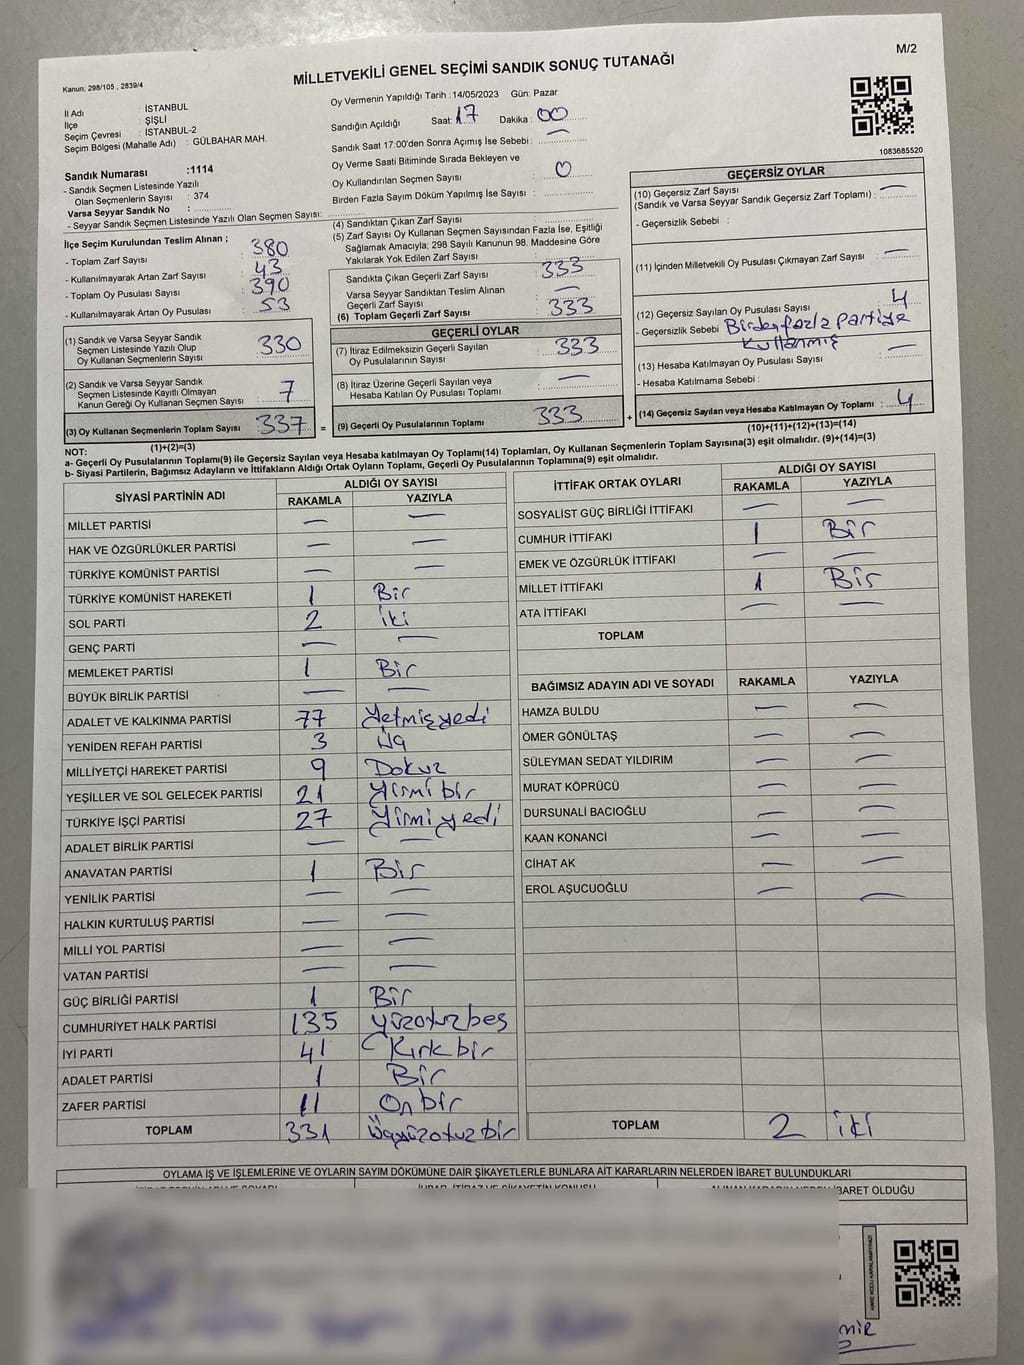 Kanun; 298/105 , 2839/4
MİLLETVEKİLİ GENEL SEÇİMİ SANDIK SONUÇ TUTANAĞI
M/2
İl Adı : İSTANBUL
İlçe : ŞİŞLİ
Seçim Çevresi : İSTANBUL-2
Seçim Bölgesi (Mahalle Adı) : GÜLBAHAR MAH.
Sandık Numarası :1114
- Sandık Seçmen Listesinde Yazılı
Olan Seçmenlerin Sayısı : 374
Varsa Seyyar Sandık No :
- Seyyar Sandık Seçmen Listesinde Yazılı Olan Seçmen Sayısı:
Oy Vermenin Yapıldığı Tarih :14/05/2023 Gün: Pazar
Sandığın Açıldığı Saat: 17 Dakika : 00
Sandık Saat 17:00'den Sonra Açımış İse Sebebi : —
Oy Verme Saati Bitiminde Sırada Bekleyen ve
Oy Kullandırılan Seçmen Sayısı : 0
Birden Fazla Sayım Döküm Yapılmış İse Sayısı :
1083685520
İlçe Seçim Kurulundan Teslim Alınan ;
- Toplam Zarf Sayısı : 380
- Kullanılmayarak Artan Zarf Sayısı : 43
- Toplam Oy Pusulası Sayısı : 390
- Kullanılmayarak Artan Oy Pusulası : 53
(1) Sandık ve Varsa Seyyar Sandık
Seçmen Listesinde Yazılı Olup
Oy Kullanan Seçmenlerin Sayısı : 330
(2) Sandık ve Varsa Seyyar Sandık
Seçmen Listesinde Kayıtlı Olmayan
Kanun Gereği Oy Kullanan Seçmen Sayısı : 7
(3) Oy Kullanan Seçmenlerin Toplam Sayısı : 337
(1)+(2)=(3)
(4) Sandıktan Çıkan Zarf Sayısı :
(5) Zarf Sayısı Oy Kullanan Seçmen Sayısından Fazla İse, Eşitliği
Sağlamak Amacıyla; 298 Sayılı Kanunun 98. Maddesine Göre
Yakılarak Yok Edilen Zarf Sayısı :
Sandıkta Çıkan Geçerli Zarf Sayısı : 333
Varsa Seyyar Sandıktan Teslim Alınan
Geçerli Zarf Sayısı : —
(6) Toplam Geçerli Zarf Sayısı : 333
GEÇERLİ OYLAR
(7) İtiraz Edilmeksizin Geçerli Sayılan
Oy Pusulalarının Sayısı : 333
(8) İtiraz Üzerine Geçerli Sayılan veya
Hesaba Katılan Oy Pusulası Toplamı : —
= (9) Geçerli Oy Pusulalarının Toplamı : 333
GEÇERSİZ OYLAR
(10) Geçersiz Zarf Sayısı
(Sandık ve Varsa Seyyar Sandık Geçersiz Zarf Toplamı) : —
- Geçersizlik Sebebi :
(11) İçinden Milletvekili Oy Pusulası Çıkmayan Zarf Sayısı : —
(12) Geçersiz Sayılan Oy Pusulası Sayısı : 4
- Geçersizlik Sebebi Birden fazla partiye
kullanmış
(13) Hesaba Katılmayan Oy Pusulası Sayısı : —
- Hesaba Katılmama Sebebi :
+ (14) Geçersiz Sayılan veya Hesaba Katılmayan Oy Toplamı : 4
(10)+(11)+(12)+(13)=(14)
NOT:
a- Geçerli Oy Pusulalarının Toplamı(9) ile Geçersiz Sayılan veya Hesaba katılmayan Oy Toplamı(14) Toplamları, Oy Kullanan Seçmenlerin Toplam Sayısına(3) eşit olmalıdır. (9)+(14)=(3)
b- Siyasi Partilerin, Bağımsız Adayların ve İttifakların Aldığı Ortak Oyların Toplamı, Geçerli Oy Pusulalarının Toplamına(9) eşit olmalıdır.
SİYASİ PARTİNİN ADI ALDIĞI OY SAYISI
RAKAMLA YAZIYLA
MİLLET PARTİSİ — —
HAK VE ÖZGÜRLÜKLER PARTİSİ — —
TÜRKİYE KOMÜNİST PARTİSİ — —
TÜRKİYE KOMÜNİST HAREKETİ 1 Bir
SOL PARTİ 2 iki
GENÇ PARTİ — —
MEMLEKET PARTİSİ 1 Bir
BÜYÜK BİRLİK PARTİSİ — —
ADALET VE KALKINMA PARTİSİ 77 Yetmişyedi
YENİDEN REFAH PARTİSİ 3 Üç
MİLLİYETÇİ HAREKET PARTİSİ 9 Dokuz
YEŞİLLER VE SOL GELECEK PARTİSİ 21 Yirmi bir
TÜRKİYE İŞÇİ PARTİSİ 27 Yirmi yedi
ADALET BİRLİK PARTİSİ — —
ANAVATAN PARTİSİ 1 Bir
YENİLİK PARTİSİ — —
HALKIN KURTULUŞ PARTİSİ — —
MİLLİ YOL PARTİSİ — —
VATAN PARTİSİ — —
GÜÇ BİRLİĞİ PARTİSİ 1 Bir
CUMHURİYET HALK PARTİSİ 135 yüzotuzbeş
İYİ PARTİ 41 Kırk bir
ADALET PARTİSİ 1 Bir
ZAFER PARTİSİ 11 On bir
TOPLAM 331 Üçyüzotuzbir
İTTİFAK ORTAK OYLARI ALDIĞI OY SAYISI
RAKAMLA YAZIYLA
SOSYALİST GÜÇ BİRLİĞİ İTTİFAKI — —
CUMHUR İTTİFAKI 1 Bir
EMEK VE ÖZGÜRLÜK İTTİFAKI — —
MİLLET İTTİFAKI 1 Bir
ATA İTTİFAKI — —
TOPLAM
BAĞIMSIZ ADAYIN ADI VE SOYADI RAKAMLA YAZIYLA
HAMZA BULDU — —
ÖMER GÖNÜLTAŞ — —
SÜLEYMAN SEDAT YILDIRIM — —
MURAT KÖPRÜCÜ — —
DURSUNALİ BACIOĞLU — —
KAAN KONANCİ — —
CİHAT AK — —
EROL AŞUCUOĞLU — —
TOPLAM 2 iki
OYLAMA İŞ VE İŞLEMLERİNE VE OYLARIN SAYIM DÖKÜMÜNE DAİR ŞİKAYETLERLE BUNLARA AİT KARARLARIN NELERDEN İBARET BULUNDUKLARI
İBARET OLDUĞU